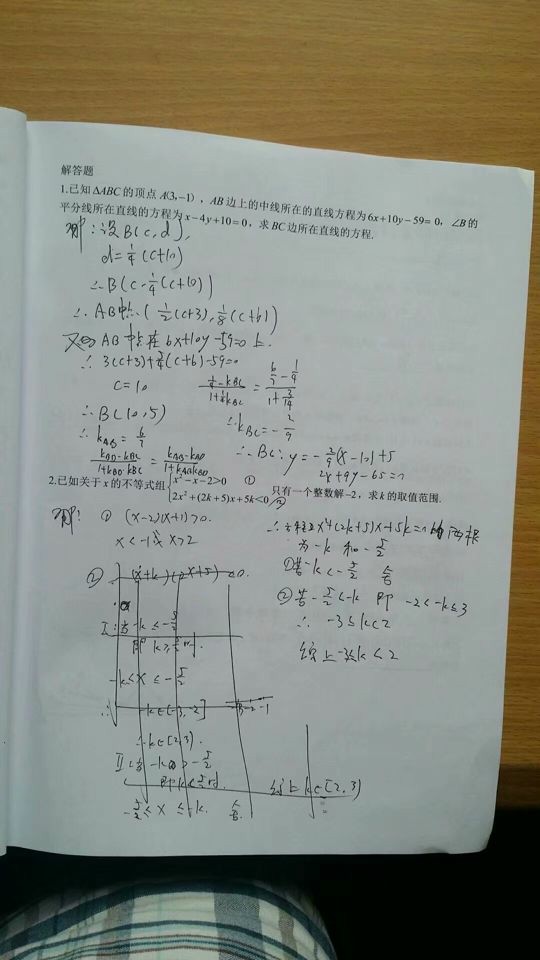 解答题
1.已知△ABC的顶点 A(3,-1), AB边上的中线所在的直线方程为6x+10y-59=0, ∠B的
平分线所在直线的方程为x-4y+10=0, 求BC边所在直线的方程.
解:设B(c,d),
d=1/4(c+10)
∴B(c,1/4(c+10))
∴AB中点(1/2(c+3),1/8(c+6))
又∵AB中点在6x+10y-59=0上.
∴3(c+3)+5/4(c+6)-59=0
c=10
∴B(10,5)
∴k_AB=6/7
(k_BD-k_BC)/(1+k_BD·k_BC)=(k_AB-k_BD)/(1+k_AB k_BD)
(1/4-k_BC)/(1+1/4k_BC)=(6/7-1/4)/(1+3/14)
∴k_BC=-2/9
∴BC:y=-2/9(x-10)+5
2x+9y-65=0
2.已如关于x的不等式组{x²-x-2>0 ①
2x²+(2k+5)x+5k<0 ② 只有一个整数解-2, 求k的取值范围.
解: ① (x-2)(x+1)>0.
x<-1或x>2
② (x+k)(2x+5)<0.
I:若-k≤-5/2
即k≥5/2时.
-k<x≤-5/2
∴-k∈[-3,-2]
-3 -2 -1
∴k∈[2,3).
II:若-k>-5/2
即k<5/2时.
-5/2≤x≤-k. 舍.
综上k∈[2,3)
∴方程2x²+(2k+5)x+5k=0的两根
为-k和-5/2
①若-k<-5/2 舍
②若-5/2<-k 即 -2<-k≤3
∴ -3≤k<2
综上-3≤k<2